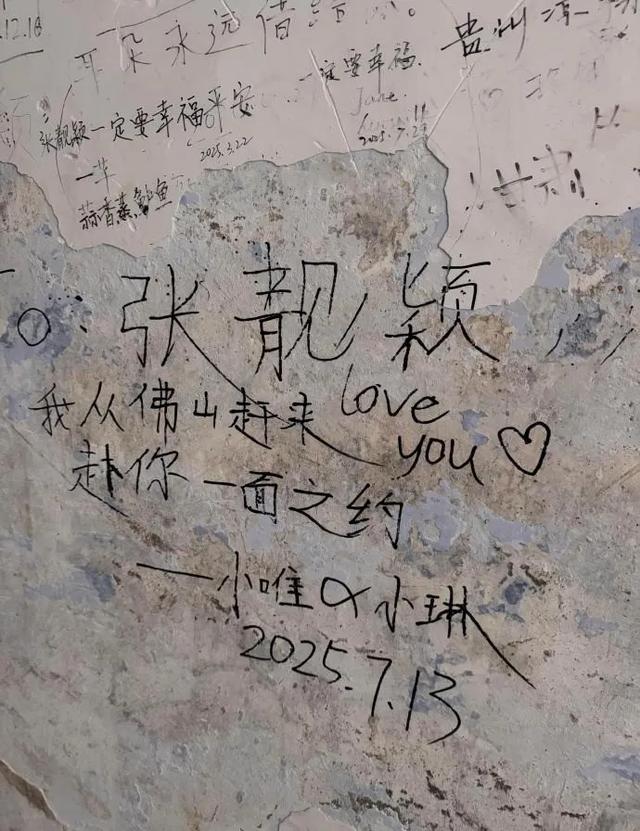 12.18
耳朵永远借给
贵州
一定要幸福
June
张靓颖一定要幸福平安
2025.3.22
一芊
蒜香蒸鲈鱼
甘肃
To. 张靓颖
我从佛山赶来 love
赴你一面之约 you♡
——小唯 & 小琳
2025.7.13